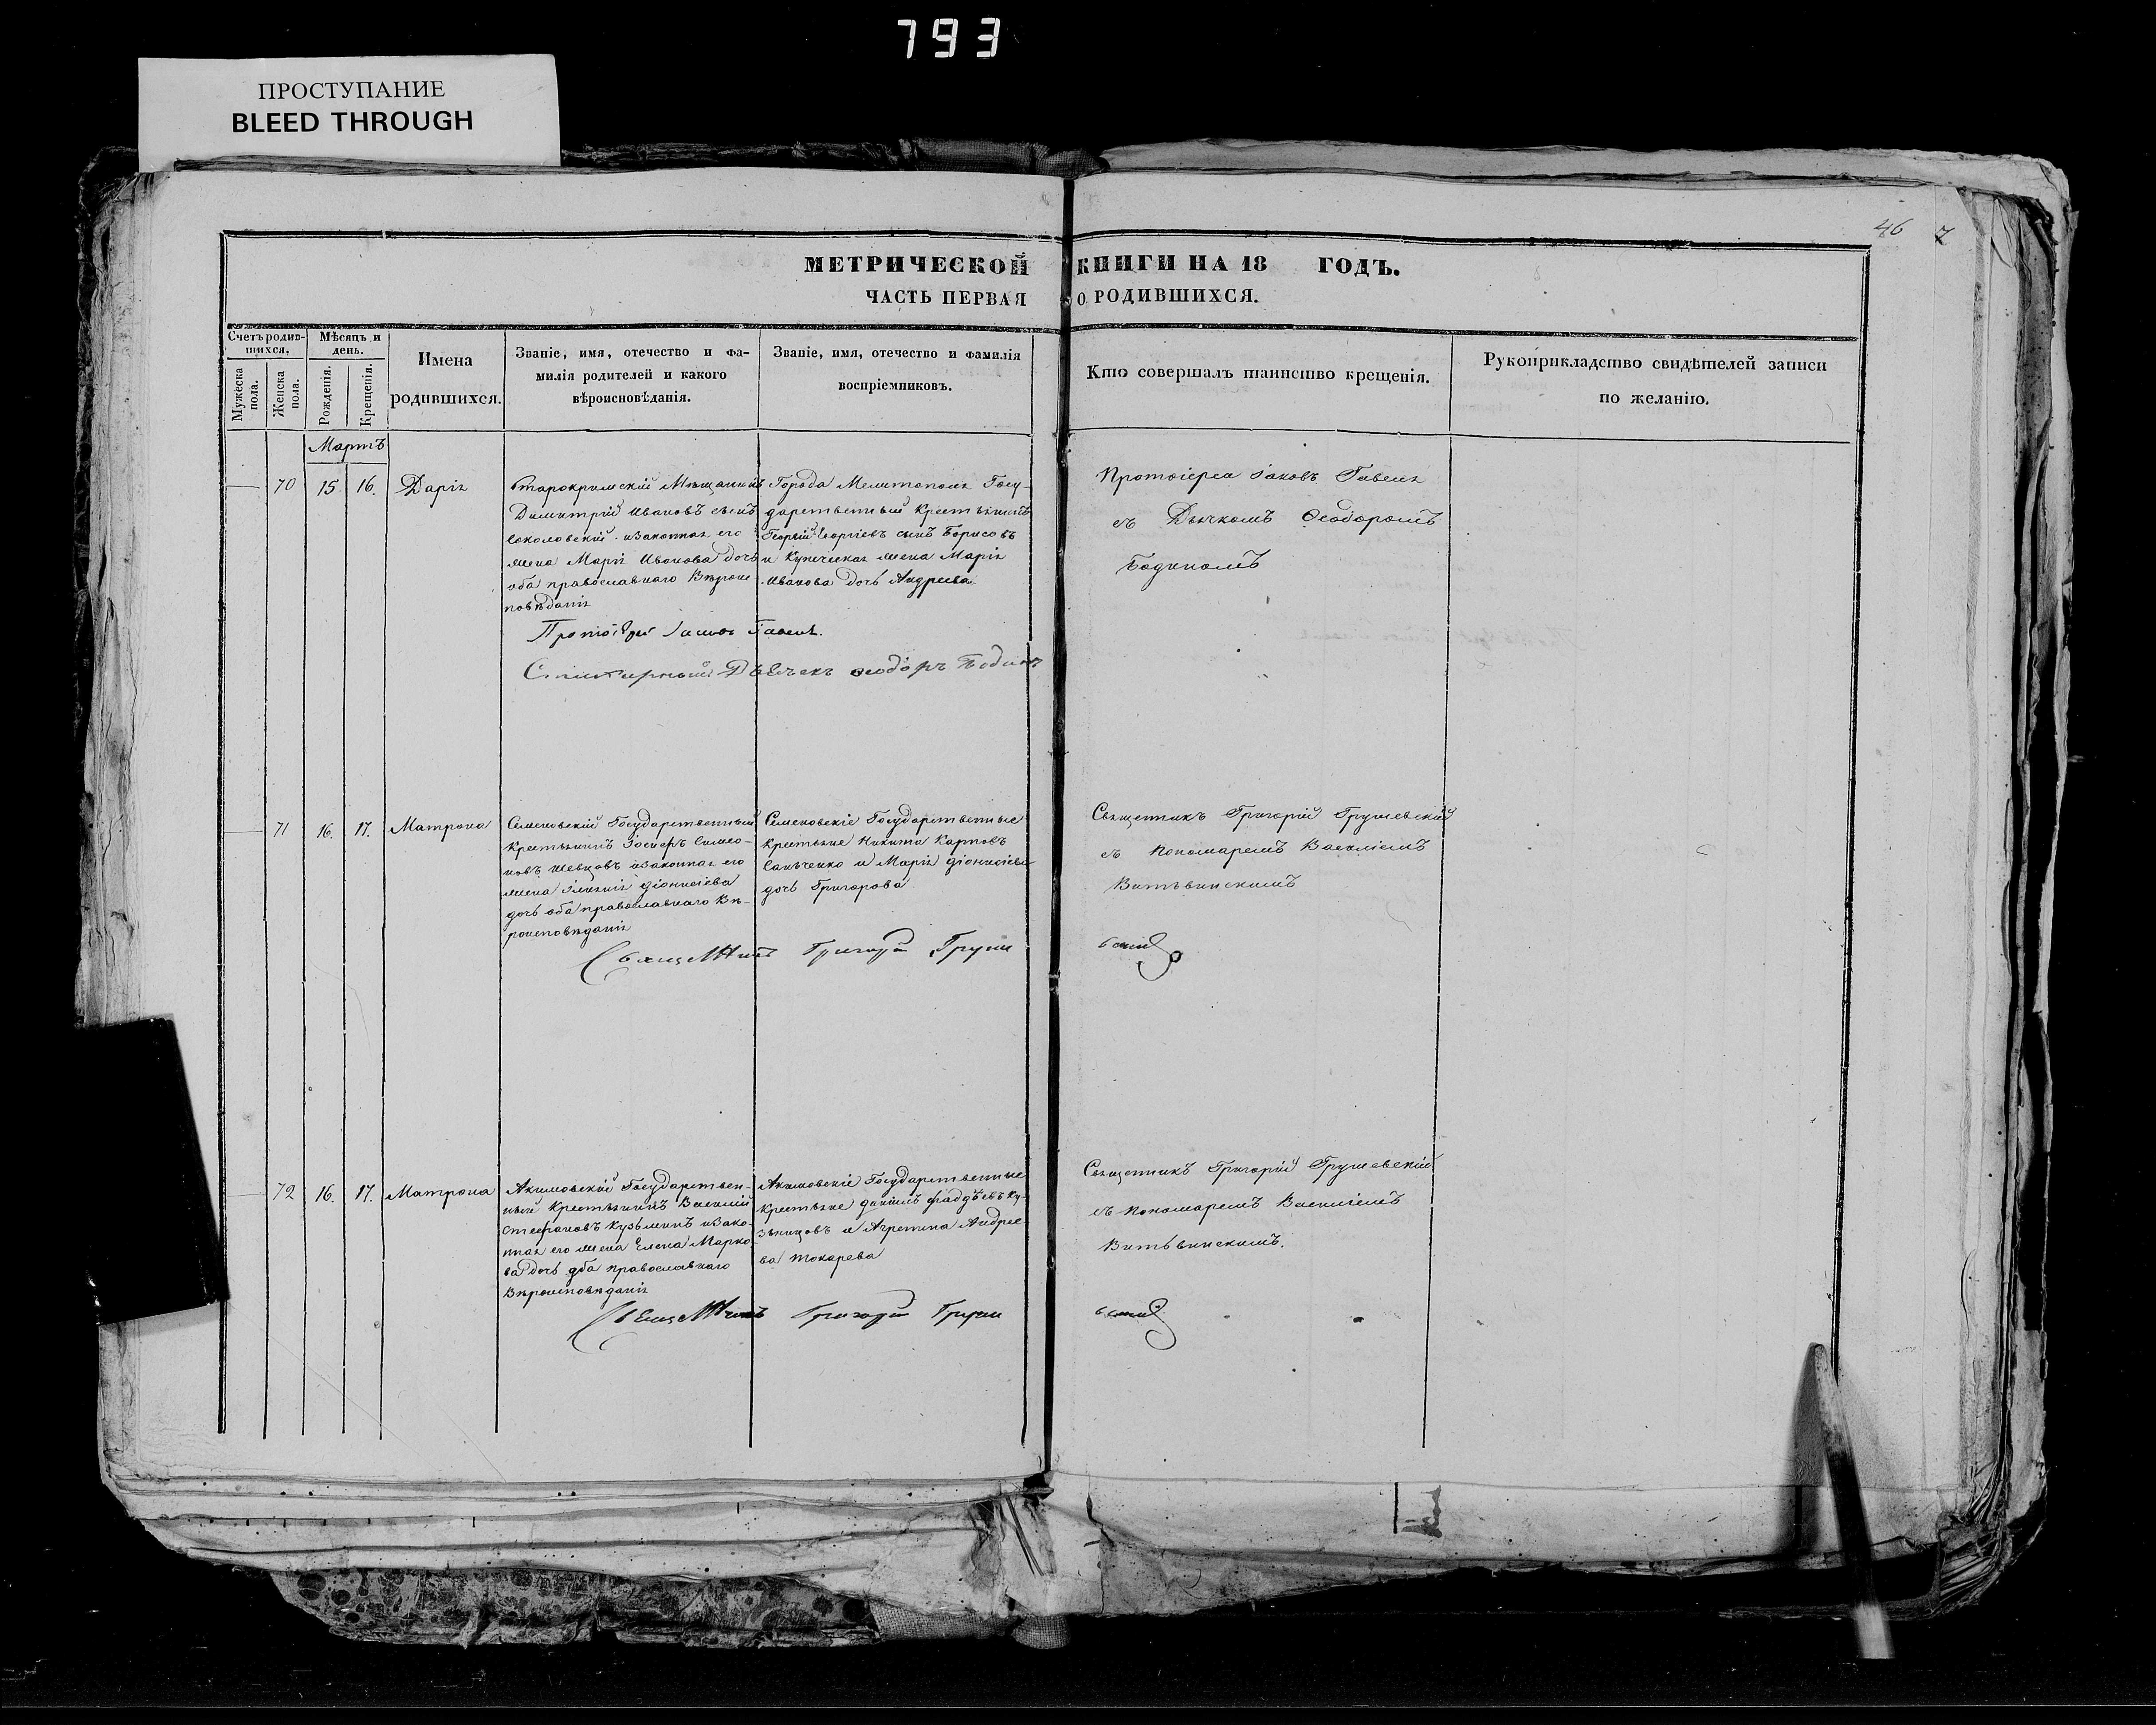 793
ПРОСТУПАНИЕ
BLEED THROUGH
46 7
МЕТРИЧЕСКОЙ КНИГИ НА 18 ГОДЪ.
ЧАСТЬ ПЕРВАЯ О РОДИВШИХСЯ.
Счетъ родив-
шихся.
Мужеска
пола.
Женска
пола.
Мѣсяцъ и
день.
Рожденія.
Крещенія.
Имена
родившихся.
Званіе, имя, отечество и фа-
милія родителей и какого
вѣроисновѣданія.
Званіе, имя, отечество и фамилія
воспріемниковъ.
Кто совершалъ таинство крещенія.
Рукоприкладство свидѣтелей записи
по желанію.
Мартъ
70 15 16. Дарія
Старокрымскій Мѣщанинъ
Димитрій Ивановъ сынъ
Соколовскій и законная его
жена Марія Иванова дочь
оба православнаго Вѣроис-
повѣданія
Города Мелитополя Госу-
дарственный крестьянинъ
Георгій Георгіевъ сынъ Борисовъ
и Купеческая жена Марія
Иванова дочь Андреева
Протоіерей Іаковъ
съ Дьячкомъ Ѳеодоромъ
Протоіерей Іаковъ
Дьячекъ Ѳеодоръ
71 16. 17. Матрона
Семеновскій Государственный
крестьянинъ Іосифъ Симео-
новъ Шевцовъ и законная его
жена діонисіева
дочь оба православнаго Вѣ-
роисповѣданія
Семеновскіе Государственные
крестьяне Никита Карповъ
Савченко и Марія діонисіева
дочь Григорова
Священникъ Григорій Грушевскій
съ Пономаремъ Василіемъ
Витвинскимъ
Священникъ Григорій Груше
вскій
72 16. 17. Матрона
Акимовскій Государствен-
ный крестьянинъ Василій
Стефановъ Кузьминъ и зако-
нная его жена Елена Марко-
ва дочь оба православнаго
Вѣроисповѣданія
Акимовскіе Государственные
крестьяне даніилъ фаддѣевъ Ку-
знецовъ и Агрепина Андрее-
ва Токарева
Священникъ Григорій Грушевскій
съ Пономаремъ Василіемъ
Витвинскимъ.
Священникъ Григорій Груше
вскій